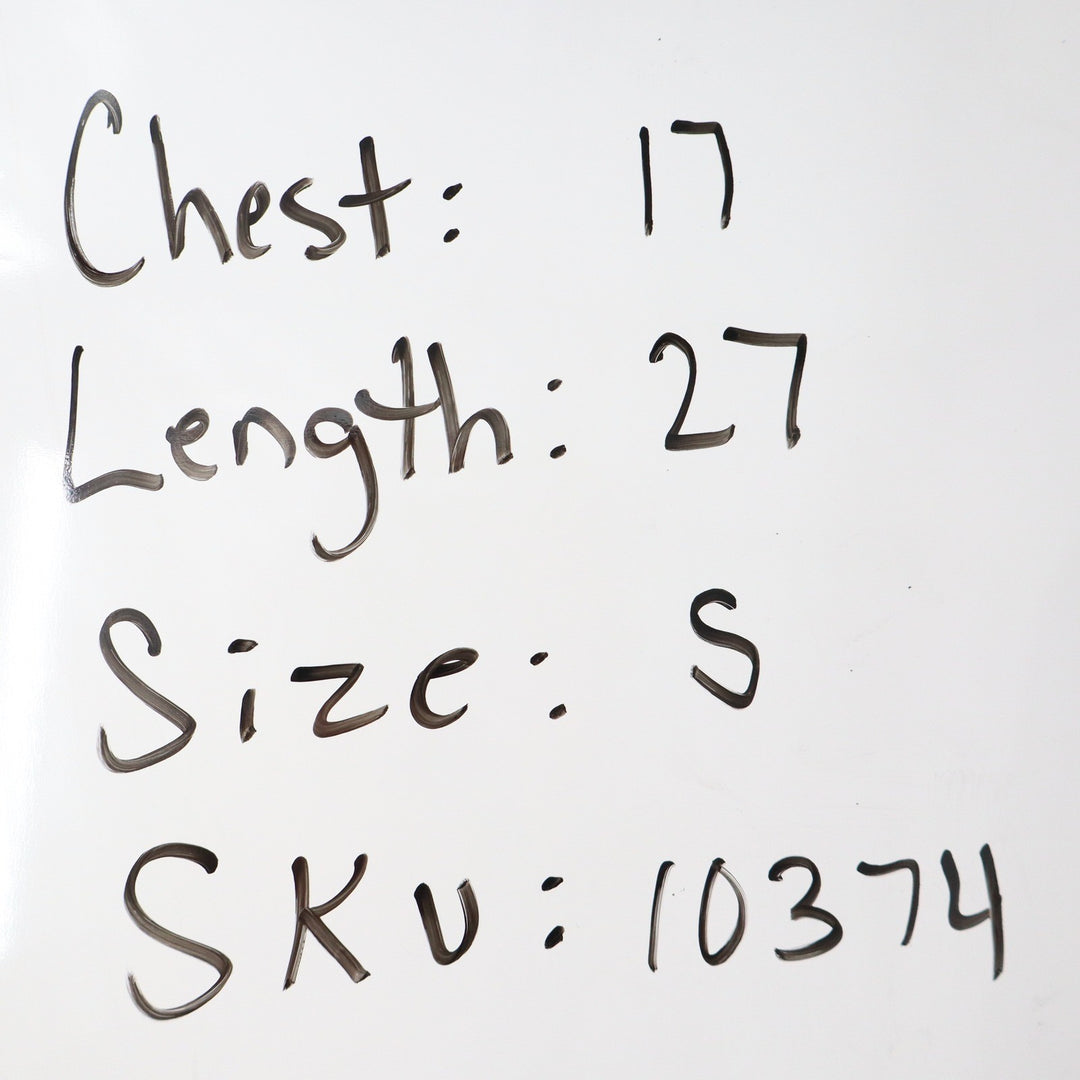 Chest: 17
Length: 27
Size: S
SKU: 10374